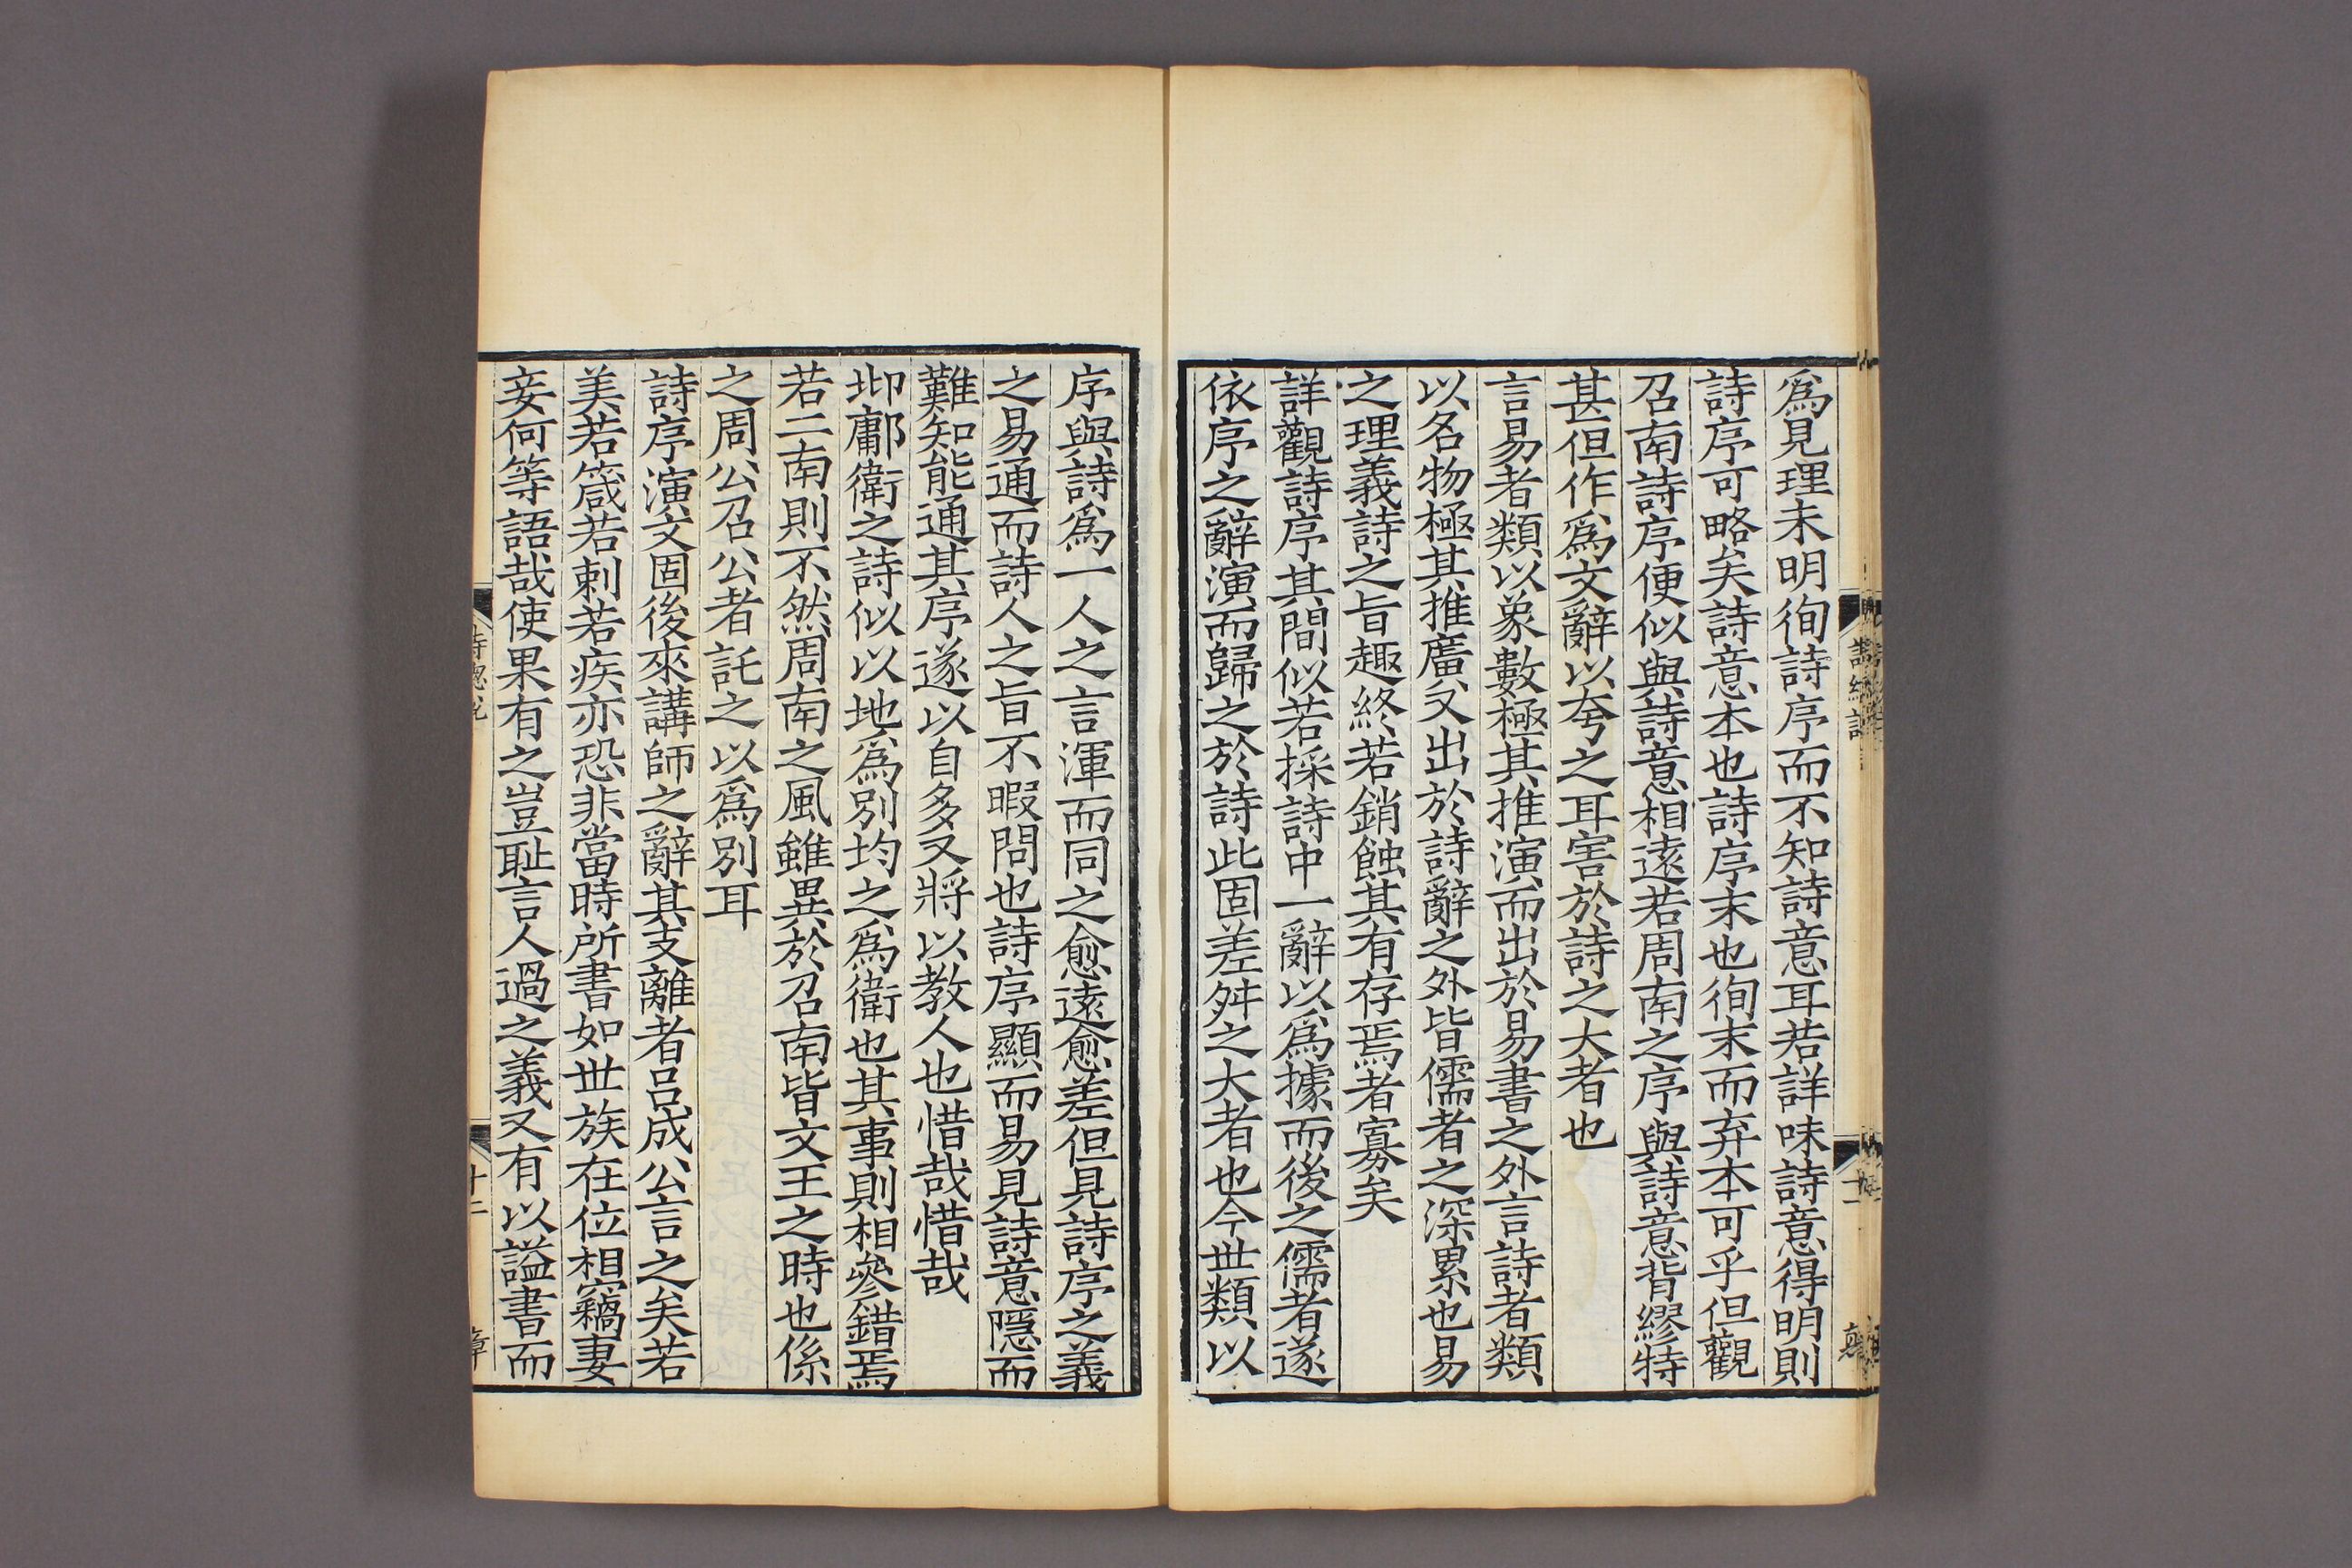 爲見理未明徇詩序而不知詩意耳若詳味詩意得明則
詩序可略矣詩意本也詩序末也徇末而弃本可乎但觀
召南詩序便似與詩意相遠若周南之序與詩意背繆特
甚但作爲文辭以夸之耳害於詩之大者也
言易者類以象數極其推演而出於易書之外言詩者類
以名物極其推廣又出於詩辭之外皆儒者之深累也易
之理義詩之旨趣終若銷蝕其有存焉者寡矣
詳觀詩序其間似若採詩中一辭以爲據而後之儒者遂
依序之辭演而歸之於詩此固差舛之大者也今世類以
序與詩爲一人之言渾而同之愈遠愈差但見詩序之義
之易通而詩人之旨不暇問也詩序顯而易見詩意隱而
難知能通其序遂以自多又將以教人也惜哉惜哉
邶鄘衛之詩似以地爲別均之爲衛也其事則相參錯焉
若二南則不然周南之風雖異於召南皆文王之時也係
之周公召公者託之以爲別耳
詩序演文固後來講師之辭其支離者呂成公言之矣若
美若箴若刺若疾亦恐非當時所書如世族在位相竊妻
妾何等語哉使果有之豈耻言人過之義又有以謚書而
詩總說
十二
章